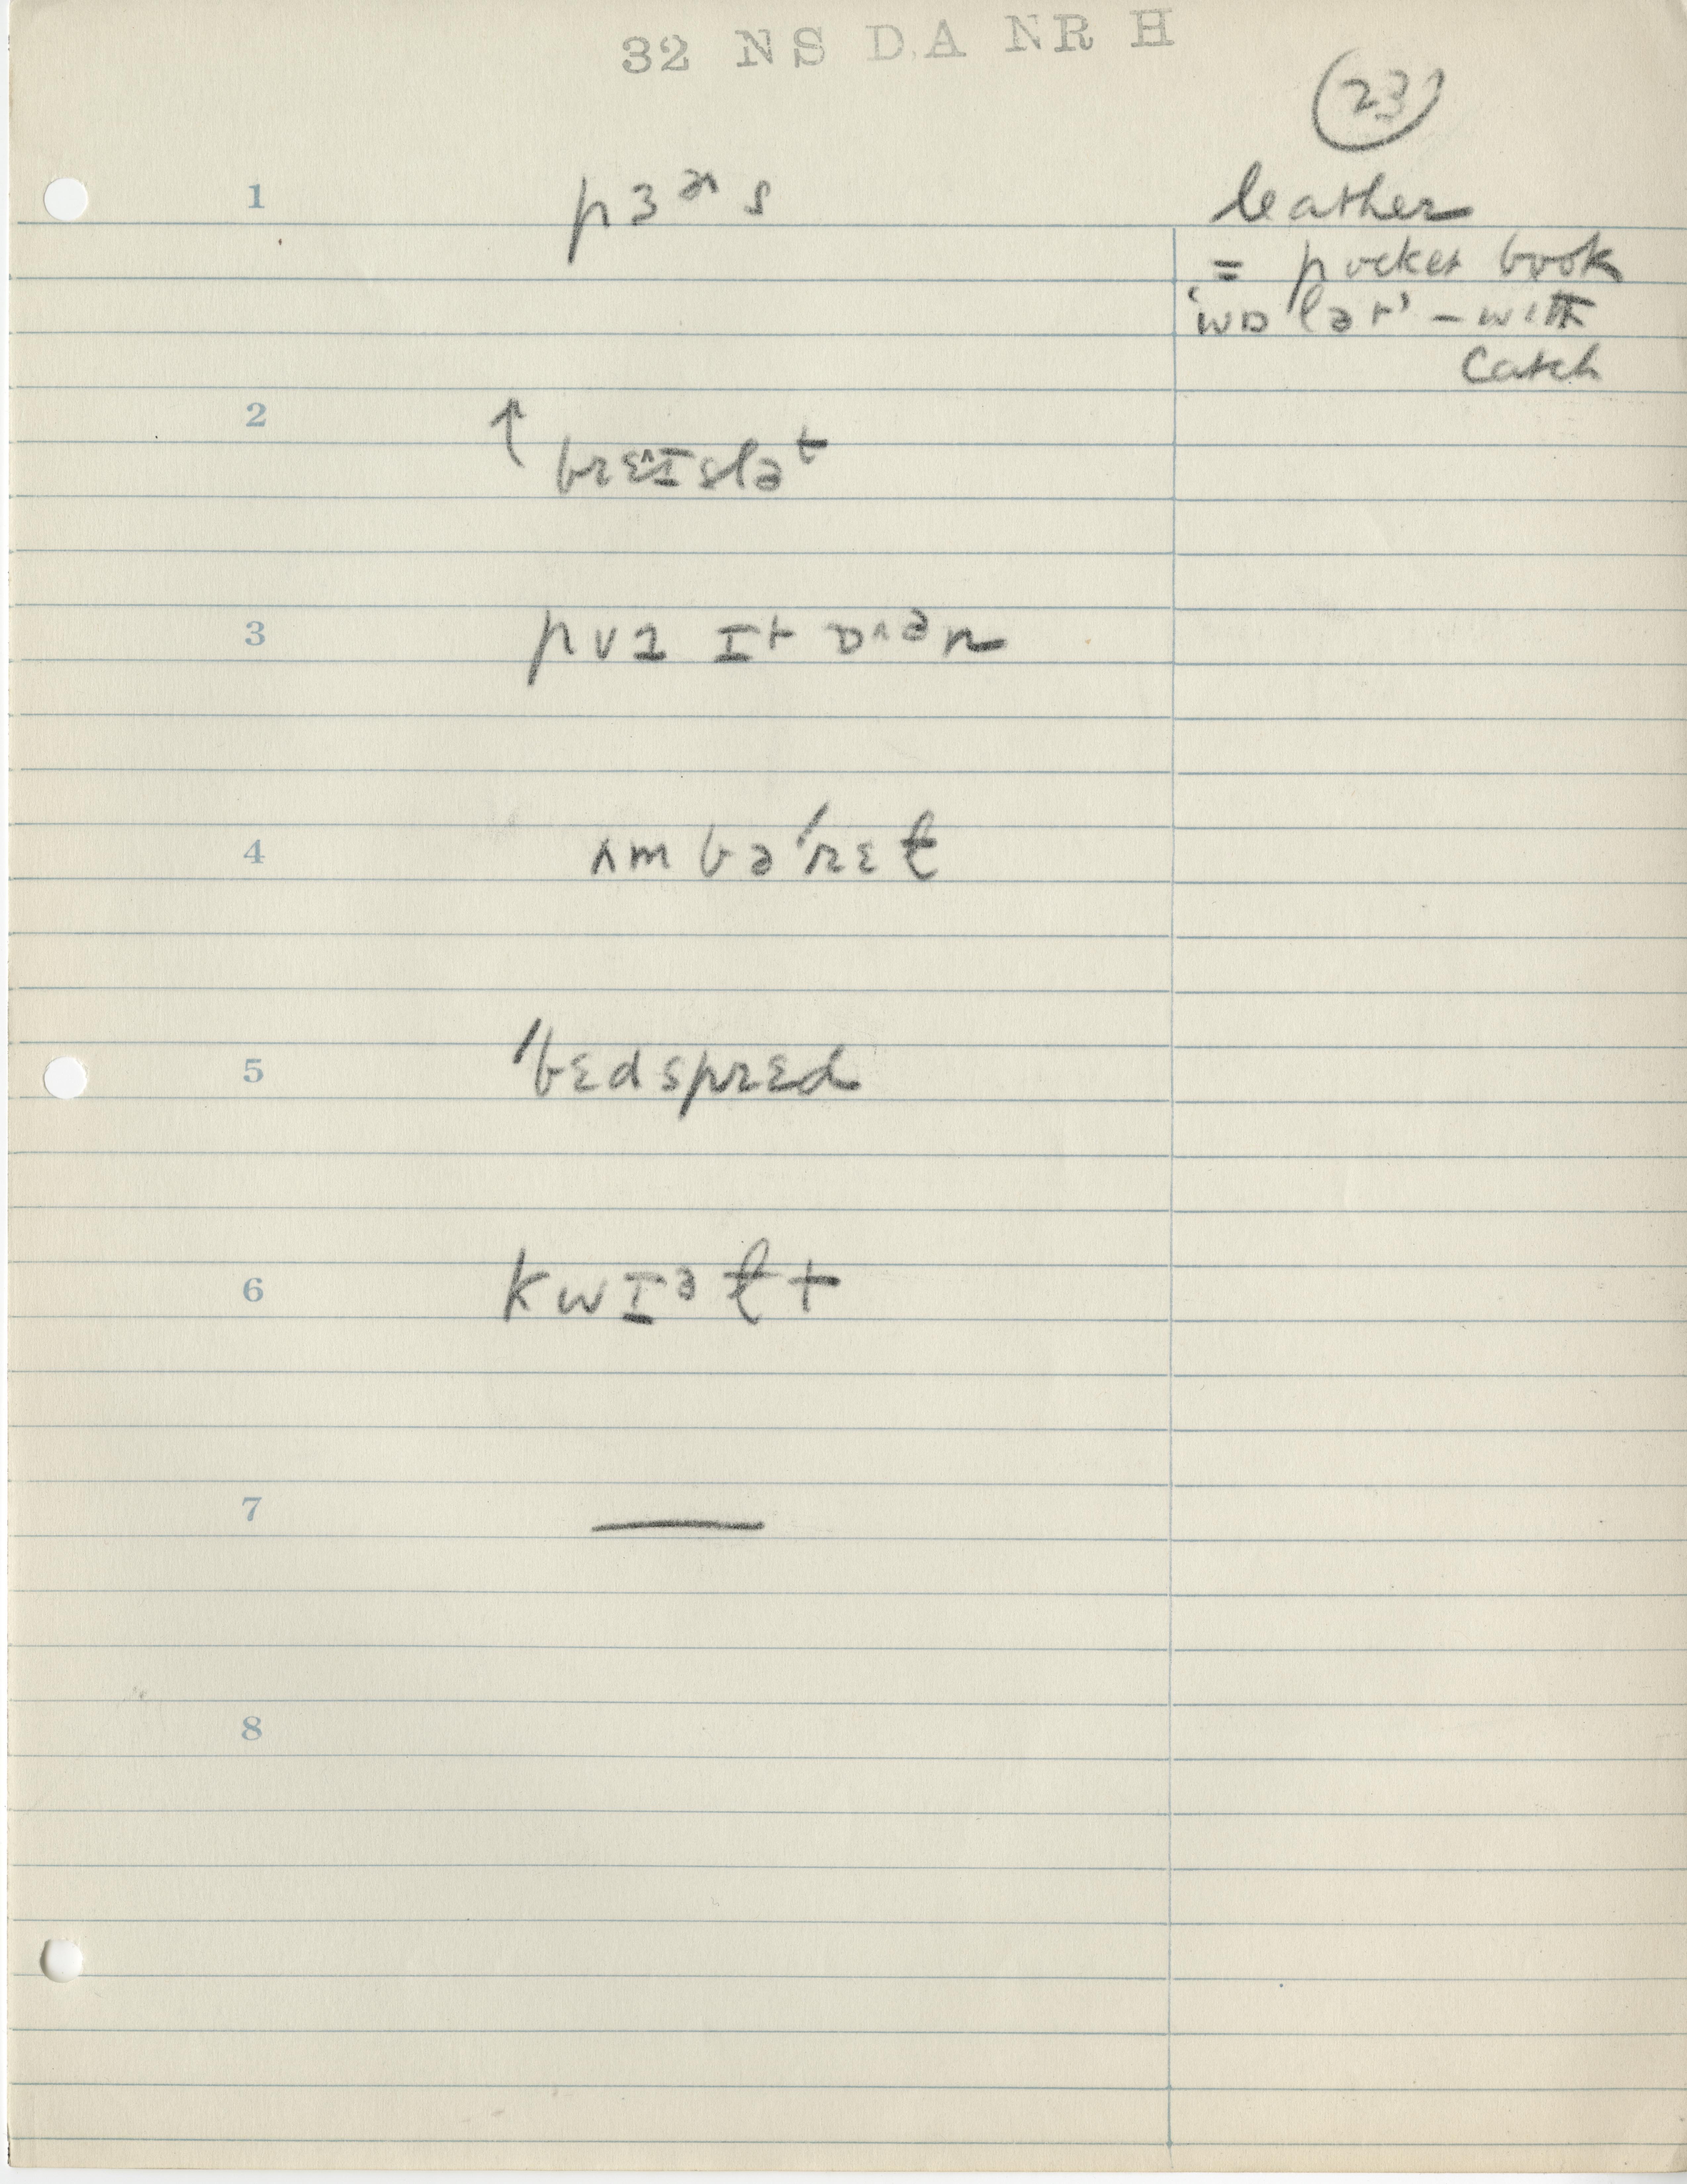 32 NS DA NR H
23
1 pɜɚs leather
= pocket book
'wɒlət' – with
catch
2 ↑ brɛ^ɪslət
3 pʊɪ ɪt ɒ^ən
4 ʌmbə'rɛɫ
5 'bɛdsprɛd
6 kwɪəɫt
7 —
8